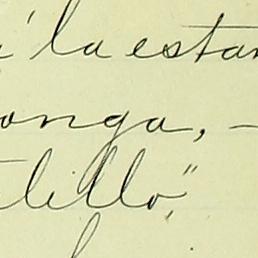 la estan
onga, –
tlillo,"